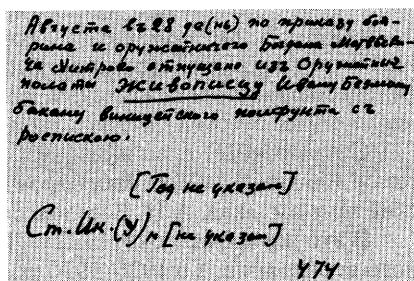 Августа въ 28 де(нь) по приказу боя-
рина и оружейничего Богдана Матвѣеви-
ча Хитрово отпущено изъ Оружейные
полаты живописцу Ивану Безмину
бакану виницейского полфунта съ
роспискою.
[Год не указан]
Ст. Ик. (У) н [не указан]
474